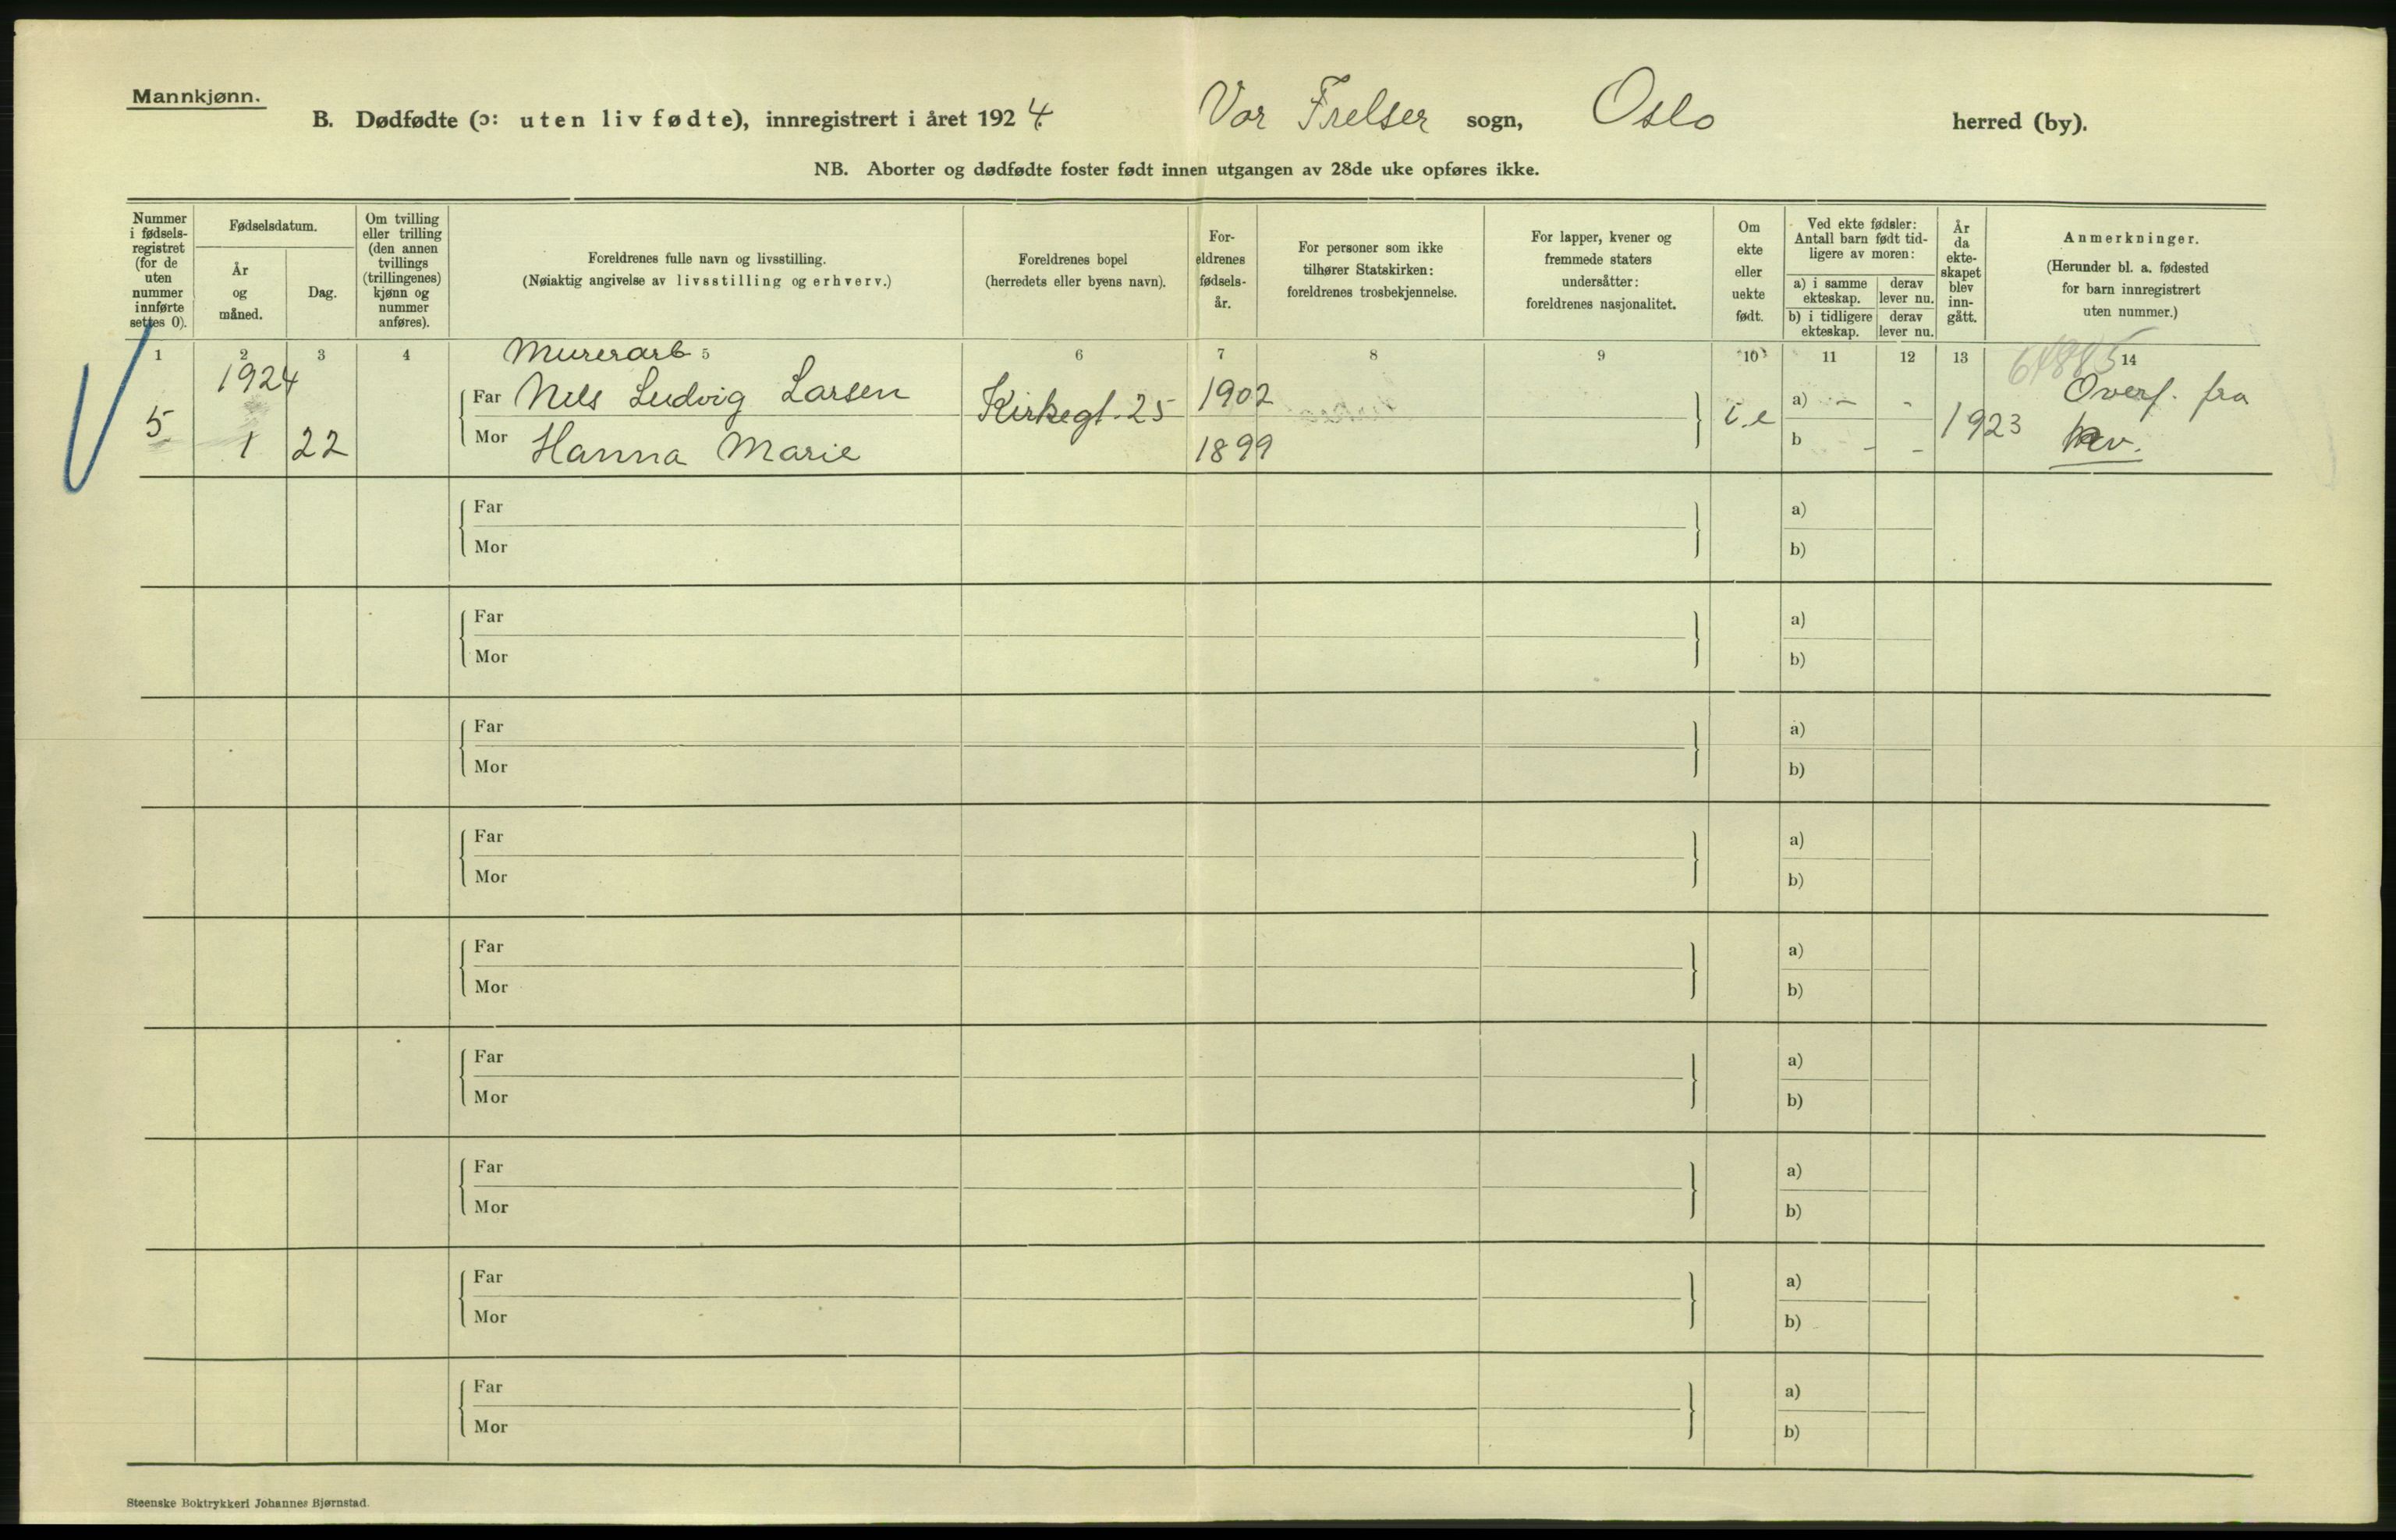 Mannkjønn.
B. Dødfødte (ɔ: uten liv fødte), innregistrert i året 1924. Vor Frelser sogn, Oslo herred (by).
NB. Aborter og dødfødte foster født innen utgangen av 28de uke opføres ikke.
Nummer
i fødsels-
registret
(for de
uten
nummer
innførte
settes 0).
Fødselsdatum.
År
og
måned.
Dag.
Om tvilling
eller trilling
(den annen
tvillings
(trillingenes)
kjønn og
nummer
anføres).
Foreldrenes fulle navn og livsstilling.
(Nøiaktig angivelse av livsstilling og erhverv.)
Foreldrenes bopel
(herredets eller byens navn).
For-
eldrenes
fødsels-
år.
For personer som ikke
tilhører Statskirken:
foreldrenes trosbekjennelse.
For lapper, kvener og
fremmede staters
undersåtter:
foreldrenes nasjonalitet.
Om
ekte
eller
uekte
født.
Ved ekte fødsler:
Antall barn født tid-
ligere av moren:
a) i samme
ekteskap.
derav
lever nu.
b) i tidligere
ekteskap.
derav
lever nu.
År
da
ekte-
skapet
blev
inn-
gått.
Anmerkninger.
(Herunder bl. a. fødested
for barn innregistrert
uten nummer.)
1 2 3 4 5 6 7 8 9 10 11 12 13 14
Murerarb
1924
Far Nils Ludvig Larsen Kirkegt. 25 1902 a) - - Overf. fra
5 1 22 i.e 1923
Mor Hanna Marie 1899 b - -
Far a)
Mor b)
Far a)
Mor b)
Far a)
Mor b)
Far a)
Mor b)
Far a)
Mor b)
Far a)
Mor b)
Far a)
Mor b)
Far a)
Mor b)
Far a)
Mor b)
Steenske Boktrykkeri Johannes Bjørnstad.